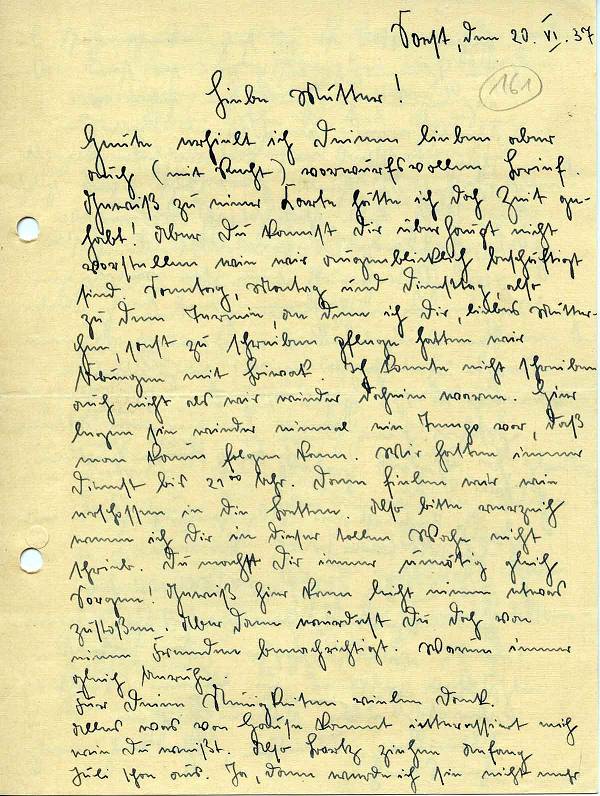 Forst, den 20. VI. 37
161
Liebe Mutter!
Heute erhielt ich Deinen lieben aber
auch (mit Recht) vorwurfsvollen Brief.
Gewiß zu einer Karte hätte ich doch Zeit ge-
habt! Aber Du kannst Dir überhaupt nicht
vorstellen wie wir augenblicklich beschäftigt
sind. Sonntag, Montag und Dienstag, also
zu dem Termin, an dem ich Dir, liebes Mutter-
chen, sonst zu schreiben pflege hatten wir
Übungen mit Biwak. Ich konnte nicht schreiben
auch nicht als wir wieder daheim waren. Hier
legen sie wieder einmal ein Tempo vor, daß
man kaum folgen kann. Wir hatten immer
Dienst bis 21⁰⁰ Uhr. Dann fielen wir wie
erschossen in die Betten. Also bitte verzeih
wenn ich Dir in dieser tollen Woche nicht
schrieb. Du machst Dir immer unnötig gleich
Sorgen! Gewiß hier kann leicht einem etwas
zustoßen. Aber dann würdest Du doch von
einem Freunde benachrichtigt. Warum immer
gleich Unruhe.
Für Deine Neuigkeiten vielen Dank.
Alles was von Hause kommt interessiert mich
wie Du weißt. Also ziehen Anfang
Juli schon aus. Ja, dann werde ich sie nicht mehr